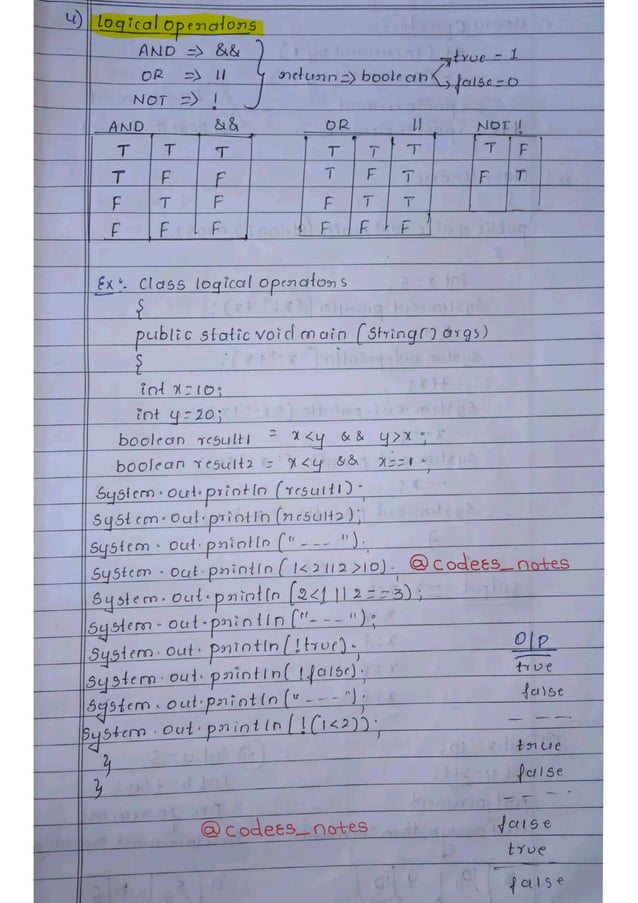 4) logical operators
AND => &&
OR => ||
NOT => !
return => boolean
true = 1
false = 0
AND && OR || NOT !!
T T T T T T T F
T F F T F T F T
F T F F T T
F F F F F F
Ex: Class logical operators
{
public static void main (String[] args)
{
int x=10;
int y=20;
boolean result1 = x<y && y>x;
boolean result2 = x<y && x==1;
System.out.println (result1);
System.out.println (result2);
System.out.println ("---").
System.out.println (1<2||2>10). @codeES_notes
System.out.println (2<1 || 2==3);
System.out.println ("---");
System.out.println (!true);
System.out.println (!false);
System.out.println ("---");
System.out.println (!(1<2));
}
}
O/P
true
false
---
true
false
----
false
true
false
@codeES_notes